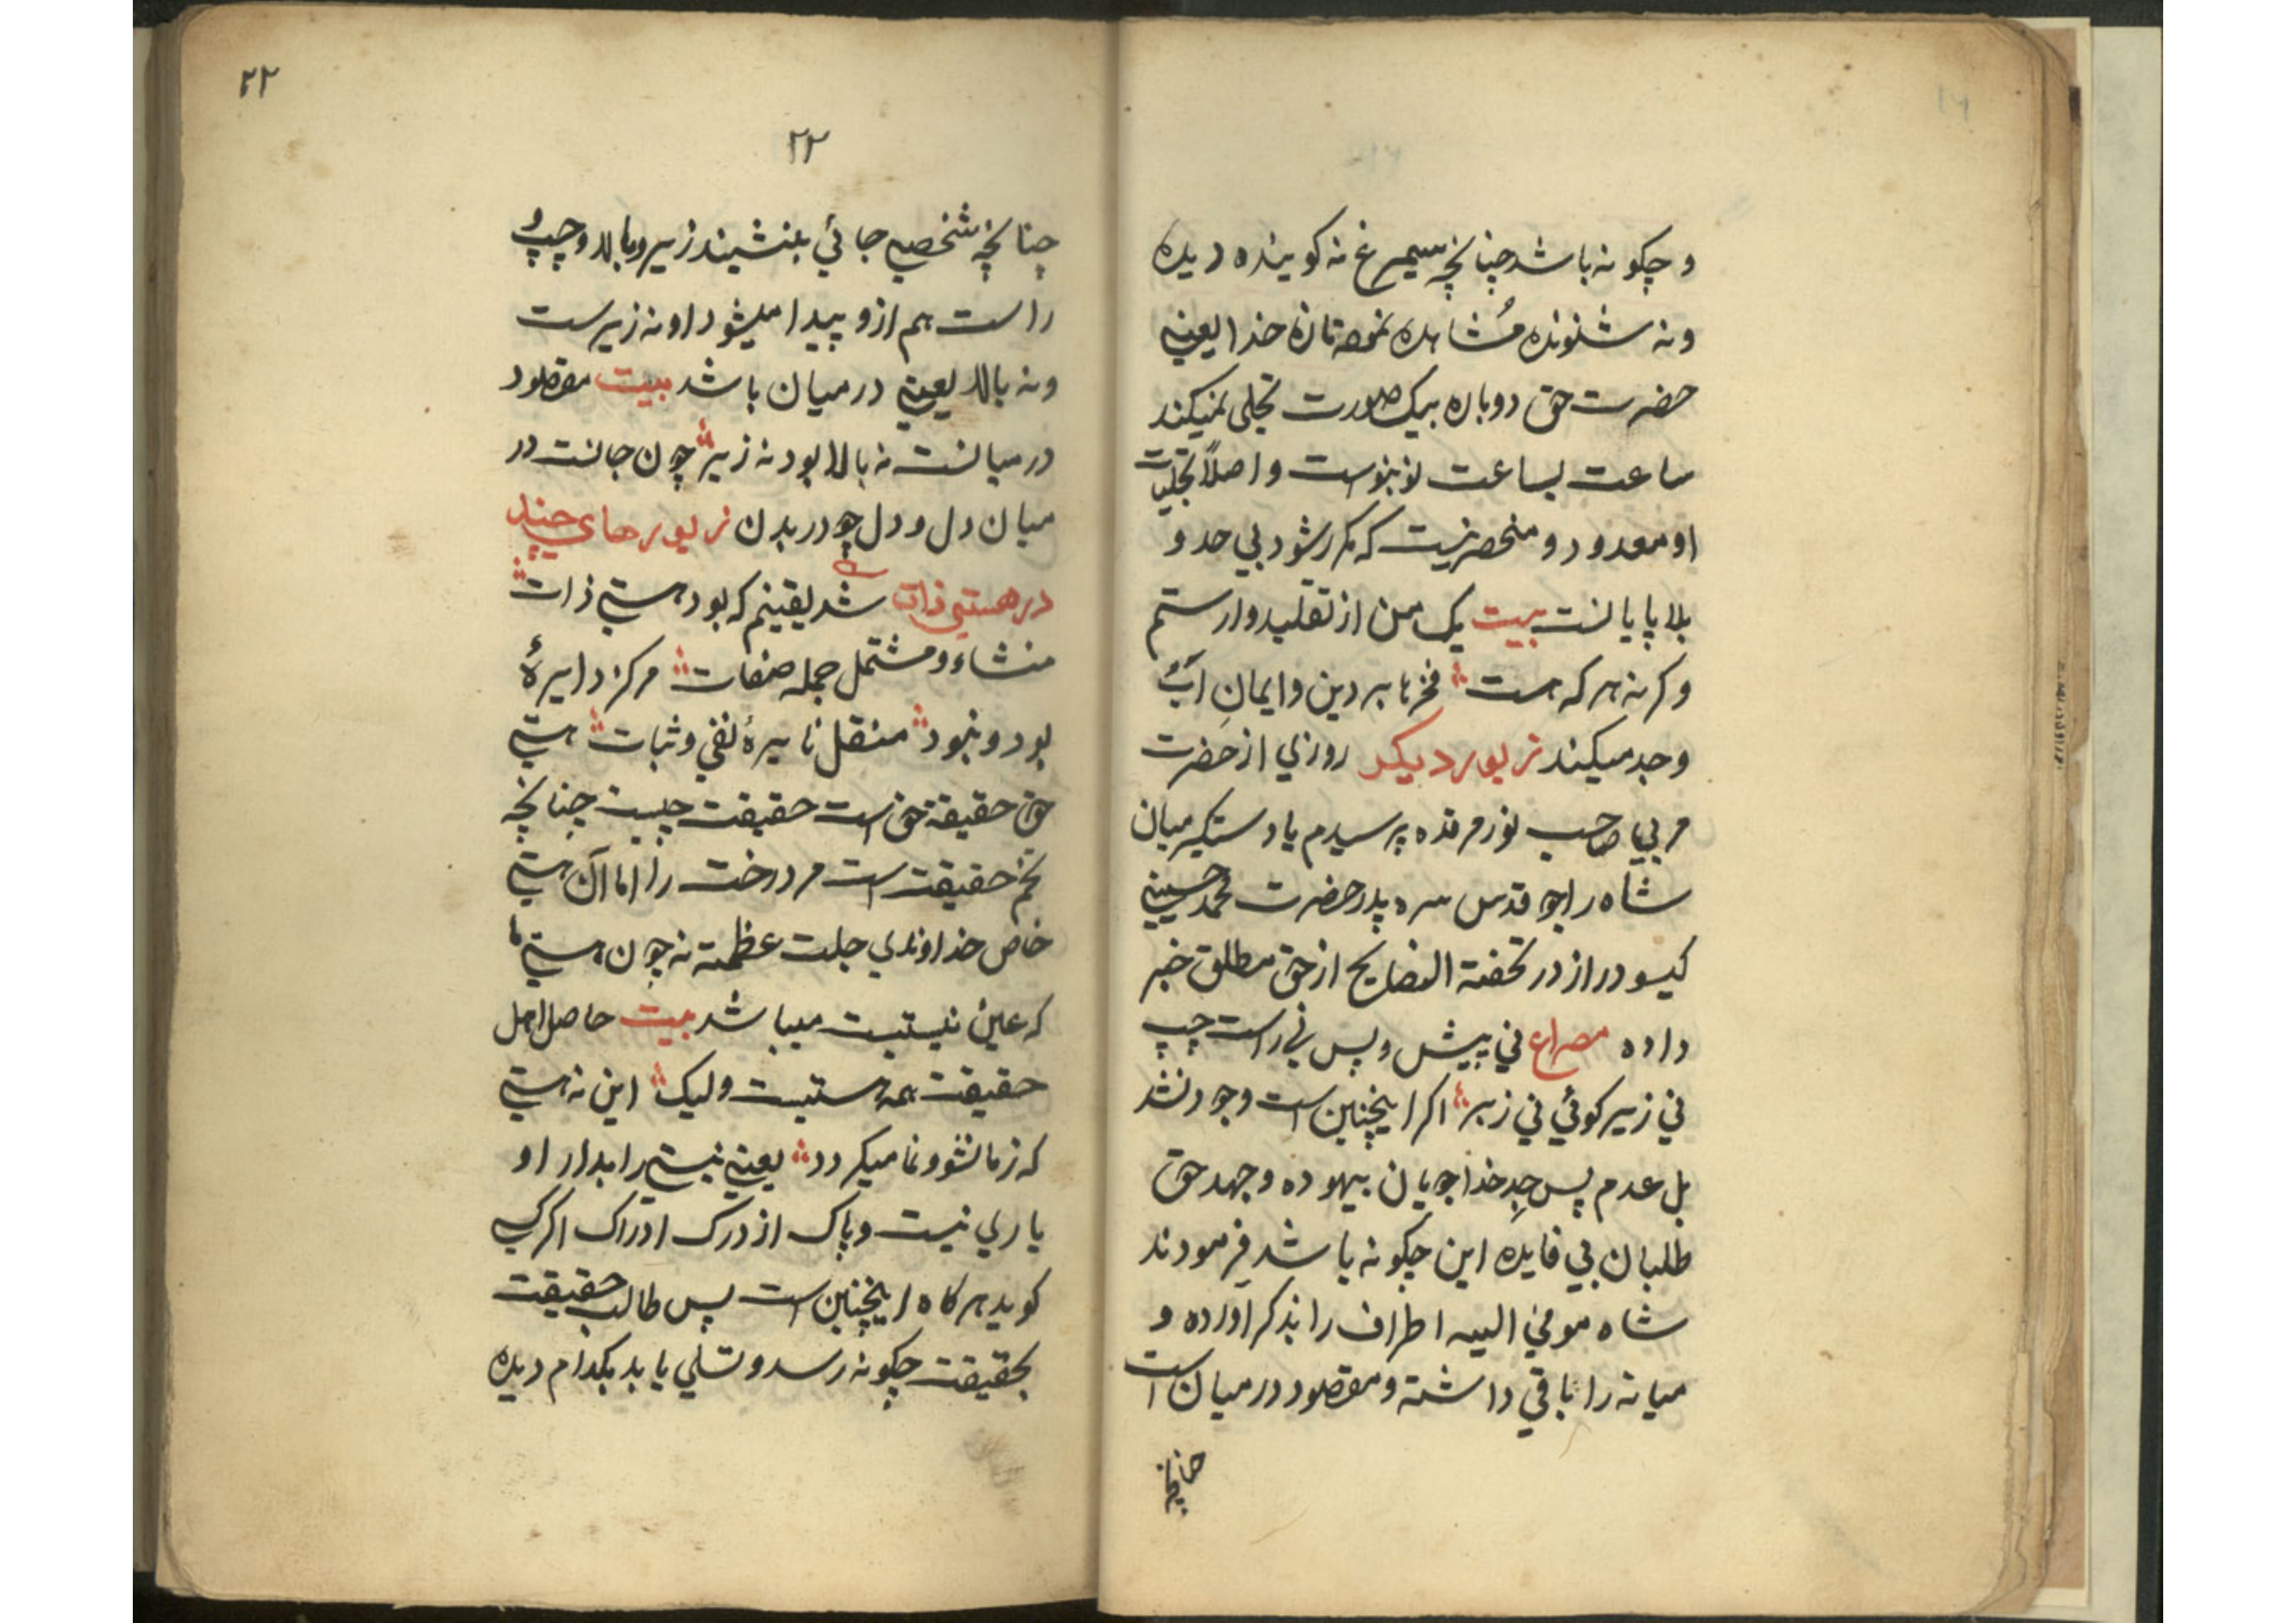 و چکونه باشد چنانچه سیمرغ نه کوینده دیده
ونه شنونده مُشاهده خدا یعنے
حضرت حق دوباره بیک صورت تجلی نمیکند
ساعت بساعت نو بنوست و اصلاً تجلیات
او معدود و منحصر نیست که مکرر شود بی حد و
بلا پایانست بیت یک من از تقلید وارستم
وکرنه هر که هست فخرها بر دین و ایمانِ اَبُ
وجد میکند زیور دیکر روزی از حضرت
مربی صاحب نور مرقده پرسیدم یا دستکیر میان
شاه راجو قدس سره پدر حضرت محمد حسینے
کیسو دراز در تحفته النصایح از حق مطلق خبر
داده مصراع نی پیش و پس نی راست چپ
نی زیر کوئی نی زبر اکر اینچنین است وجود نشد
بل عدم پس جِدِ خدا جویان بیهوده و جهد حق
طلبان بی فایده این چکونه باشد فرمودند
شاه مومی الیه اطراف را بذکر اورده و
میانه را باقی داشته و مقصود در میان است
چنانچه
۲۲
۲۲
چنانچه شخصے جائی بنشیند زیر و بالا و چپ و
راست هم ازو پیدا میشود او نه زیرست
ونه بالا یعنے درمیان باشد بیت مقصود
در میانست نه بالا بود نه زیر چون جانست در
میان دل و دل چو در بدن زیورهای چند
در هستی ذات شد یقینم که بود هستے ذات
منشاء و مشتمل جمله صفات مرکز دایرهٔ
بود و نبود منقل نایرهٔ نفی و ثبات هستے
حق حقیقة حق است حقیقت چیست چنانچه
تخم حقیقت است مر درخت را اما آن هستے
خاص خداوندی جلت عظمته نه چون هستے ما
که عین نیستیت میباشد بیت حاصل اهل
حقیقت همه هستیت ولیک این نه هستے
که زما نشو و نما میکردد یعنے نیستے را بدار او
یاری نیست و پاک از درک ادراک اکر کسے
کوید هرکاه اینچنین است پس طالب حقیقت
بحقیقت چکونه رسد و تسلی یابد بکدام دیده